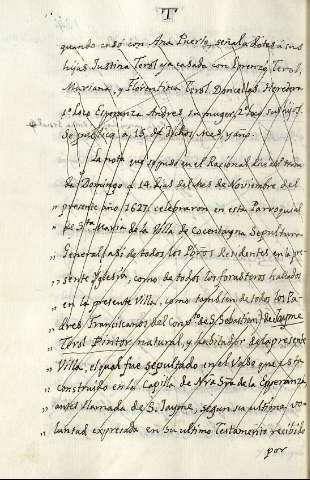 T
quando casó con Ana Puerto, señala dotes á sus
hijas Justina Terol ya casada con Lorenzo Terol,
Mariana, y Florentina Terol Doncellas. Heredera
1º loco Esperanza Andres su muger, 2º loco sus hijos.
Se publicó á 15. de dichos, mes, y año.
La nota que se puso en el Racional, dice del tenor
Domingo á 14. dias del mes de Noviembre del
" presente año 1627. celebraron en esta Parroquial
" de Sta. Maria de la Villa de Cocentayna Sepultura
" General, asi de todos los Residentes en la pre-
" sente Yglesia, como de todos los forasteros hallados
" en la presente Villa, como tambien de todos los Pa-
" dres Franciscanos del Convto. de S. Sebastian, de Jayme
" Terol Pintor natural, y habitador de la presente
" Villa, el qual fue sepultado en el Vaso que está
" construido en la Capilla de Nra Sra de la Esperanza
" antes llamada de S. Jayme, segun su ultima vo-
" luntad expresada en su ultimo Testamento recibido
por